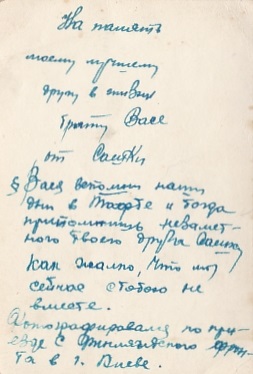 На память
моему лучшему
другу в жизни
брату Васе
от Сашки
Вася вспомни наши
дни в и тогда
припомнишь незамет-
ного твоего друга Сашку
Как жалко, что мы
сейчас с тобою не
вместе.
Фотографировался по при-
езде с Финляндского фрон-
та в г. Киеве.